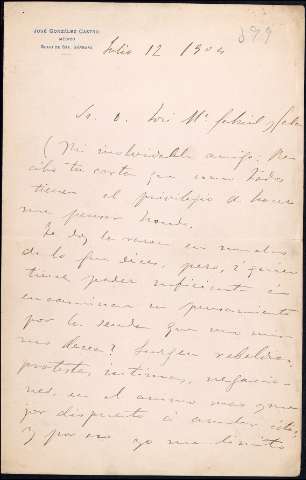 JOSÉ GONZÁLEZ CASTRO
MÉDICO
399
Julio 12 1904
Sr. D. José Mª Gabriel y Galán
Mi inolvidable amigo: Re
cibo tu carta que como todas
tienen el privilegio de hacer
me pensar hondo.
Te doy la razón en mucho
de lo que dices, pero, ¿quien
tiene poder suficiente
encaminar su pensamiento
por la senda que uno mis
mo desea? Surgen rebeldías,
protestas íntimas, negacio
nes, en el animo mas
por dispuesto á
y por eso yo